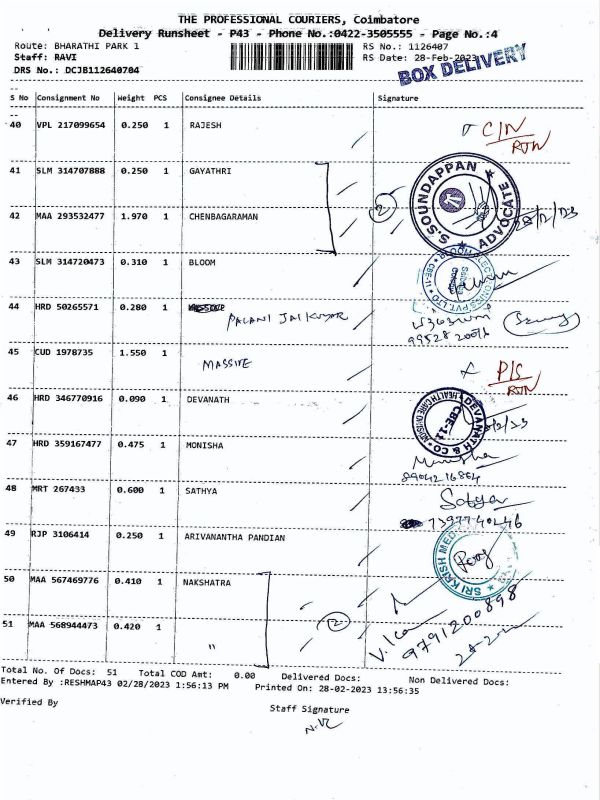 THE PROFESSIONAL COURIERS, Coimbatore
Delivery Runsheet - P43 - Phone No.:0422-3505555 - Page No.:4
Route: BHARATHI PARK 1 RS No.: 1126407
Staff: RAVI RS Date: 28-Feb-2023
DRS No.: DCJB112640704
BOX DELIVERY
S No Consignment No Weight PCS Consignee Details Signature
40 VPL 217099654 0.250 1 RAJESH
C/N
RTN
41 SLM 314707888 0.250 1 GAYATHRI
2
S.SOUNDAPPAN ADVOCATE
42 MAA 293532477 1.970 1 CHENBAGARAMAN
43 SLM 314720473 0.310 1 BLOOM
44 HRD 50265571 0.280 1
PALANI JAIKUMAR
45 CUD 1978735 1.550 1
MASSIVE
RTN
46 HRD 346770916 0.090 1 DEVANATH
DEVANATH & CO
CBE-11
47 HRD 359167477 0.475 1 MONISHA
Monisha
8904216864
48 MRT 267433 0.600 1 SATHYA
Sathya
7397740246
49 RJP 3106414 0.250 1 ARIVANANTHA PANDIAN
SRI KRISH MED
50 MAA 567469776 0.410 1 NAKSHATRA
51 MAA 568944473 0.420 1 "
2
9791200898
Total No. Of Docs: 51 Total COD Amt: 0.00 Delivered Docs: Non Delivered Docs:
Entered By :RESHMAP43 02/28/2023 1:56:13 PM Printed On: 28-02-2023 13:56:35
Verified By
Staff Signature